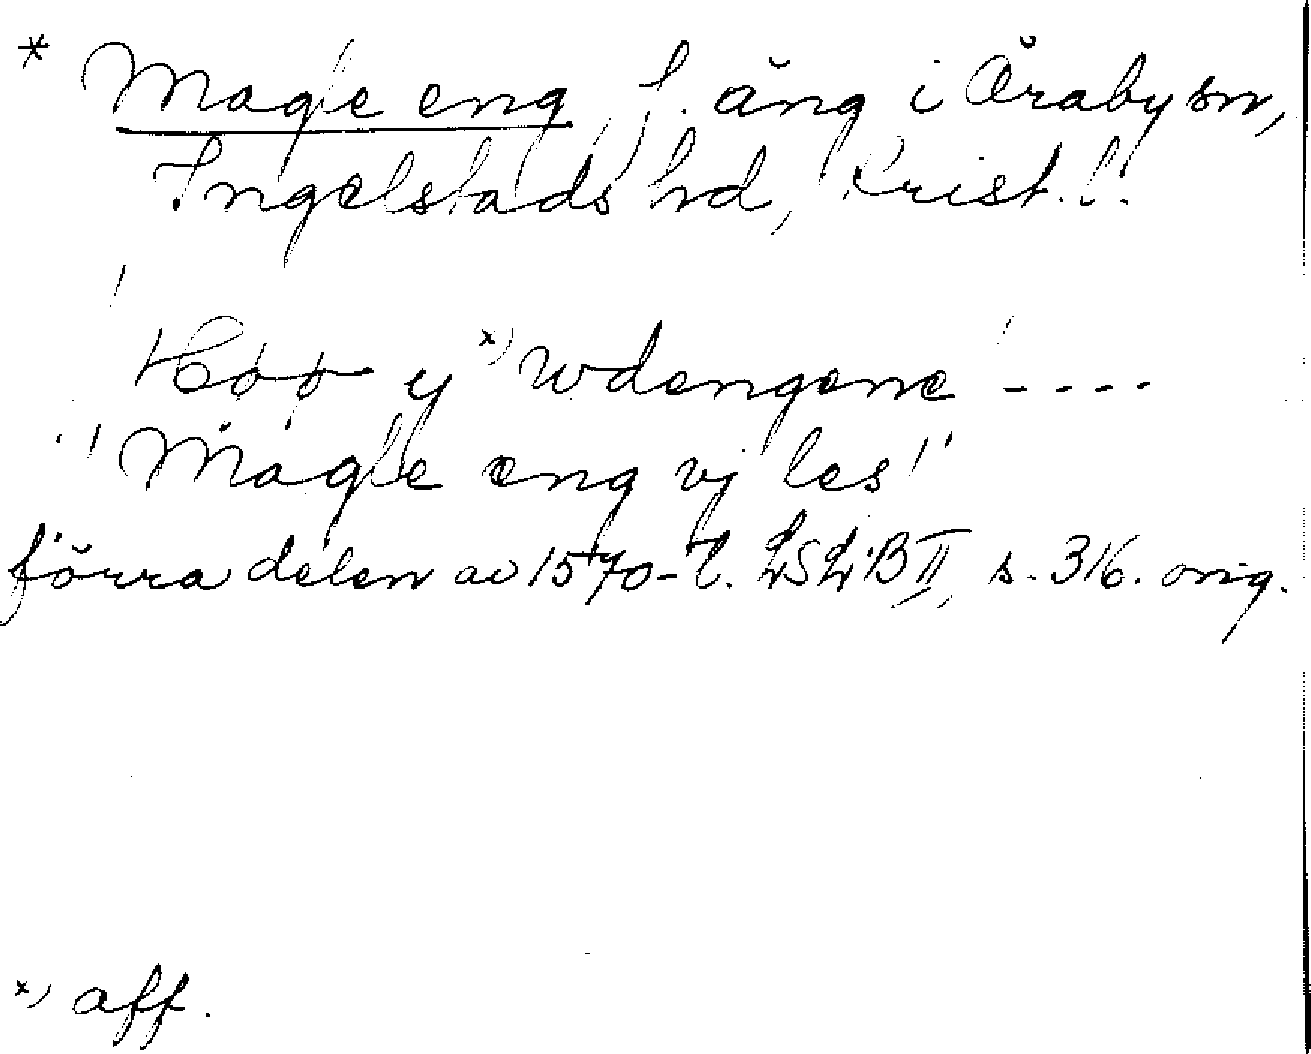 * Magle eng, f. äng i Öraby sn,
Ingelstads hd, Krist. l.
Høø y *) wdengene ----
"Magle eng vj les"
förra delen av 1570-t. LSLB II, s. 316. orig.
*) aff.